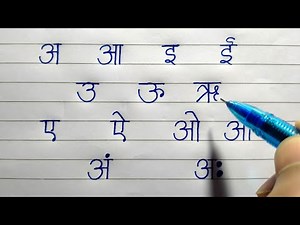 अ आ इ ई
उ ऊ ऋ
ए ऐ ओ औ
अं अः